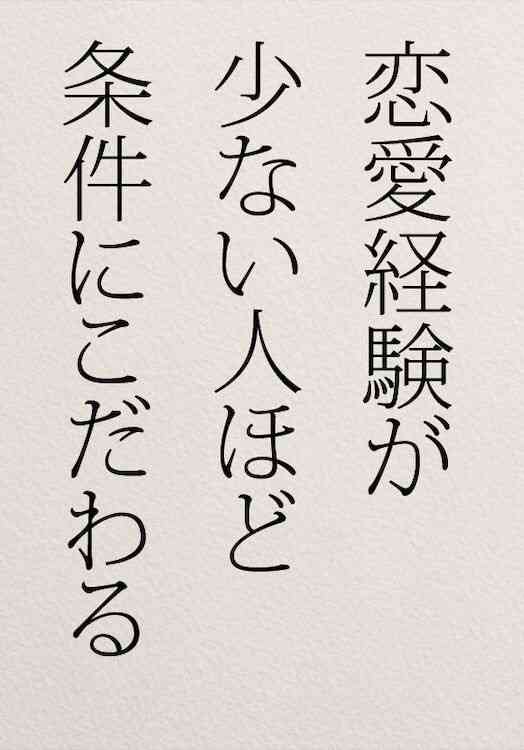 恋愛経験が
少ない人ほど
条件にこだわる